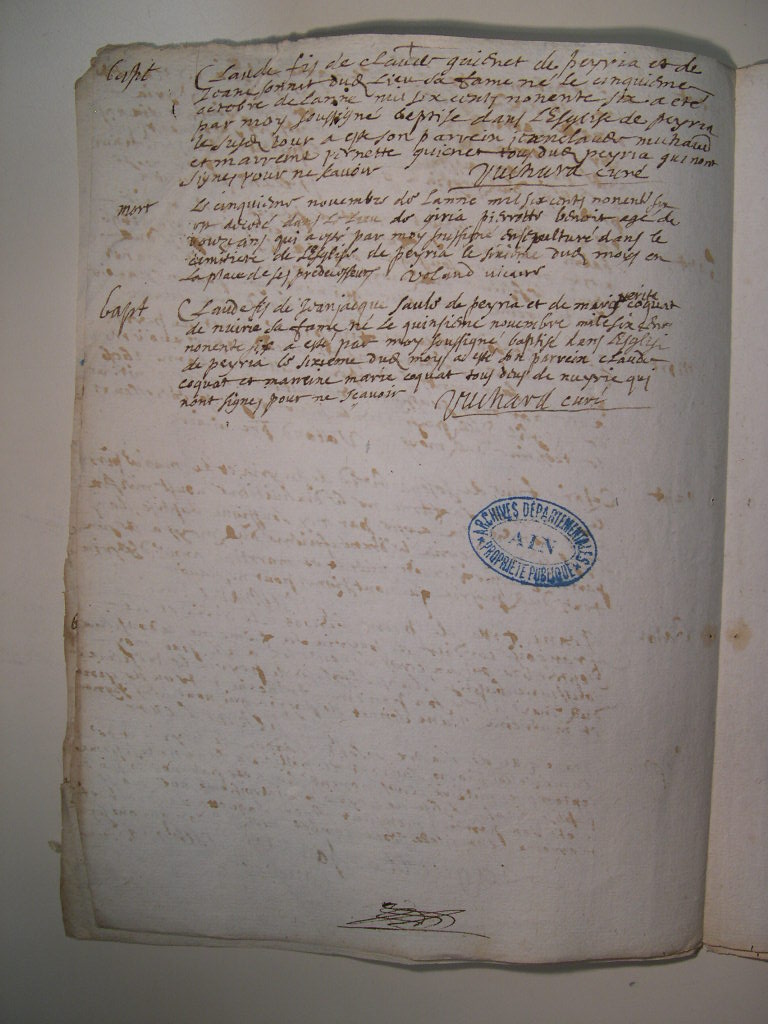 bapt Claude fis de Claude quienet de peyria et de
Jeane Jonnet dud lieu sa fame né le cinquieme
octobre de lanne mil six cents nonente six a eté
par moy soussigné baptise dans l'Esglise de peyria
le susd jour a esté son parrein Jean claude michaud
et marreine pernette quienet tous dud peyria qui nont
signes pour ne scavoir Vuchard curé
mort Le cinquieme novembre de lanne mil six cents nonent six
est decedé dans le lieu de giria pierrotte benoit agé de
ans qui a esté par moy soussigné ensepulturé dans le
cimetiere de l'Esglise de peyria le sixieme dud moys en
la place de ses predecesseurs Voland vicaire
bapt Claude fis de Jean jacque saule de peyria et de marg^uerite coquat
de nuirie sa fame né le quinsieme novembre mil six cent
nonente six a esté par moy soussigne baptise dans l'Esglise
de peyria le sixieme dud moys a esté son parrein Claude
coquat et marreine marie coquat tous deus de nuyrie qui
nont signes pour ne scavoir Vuchard curé
ARCHIVES DÉPARTEMENTALES
AIN
PROPRIÉTÉ PUBLIQUE